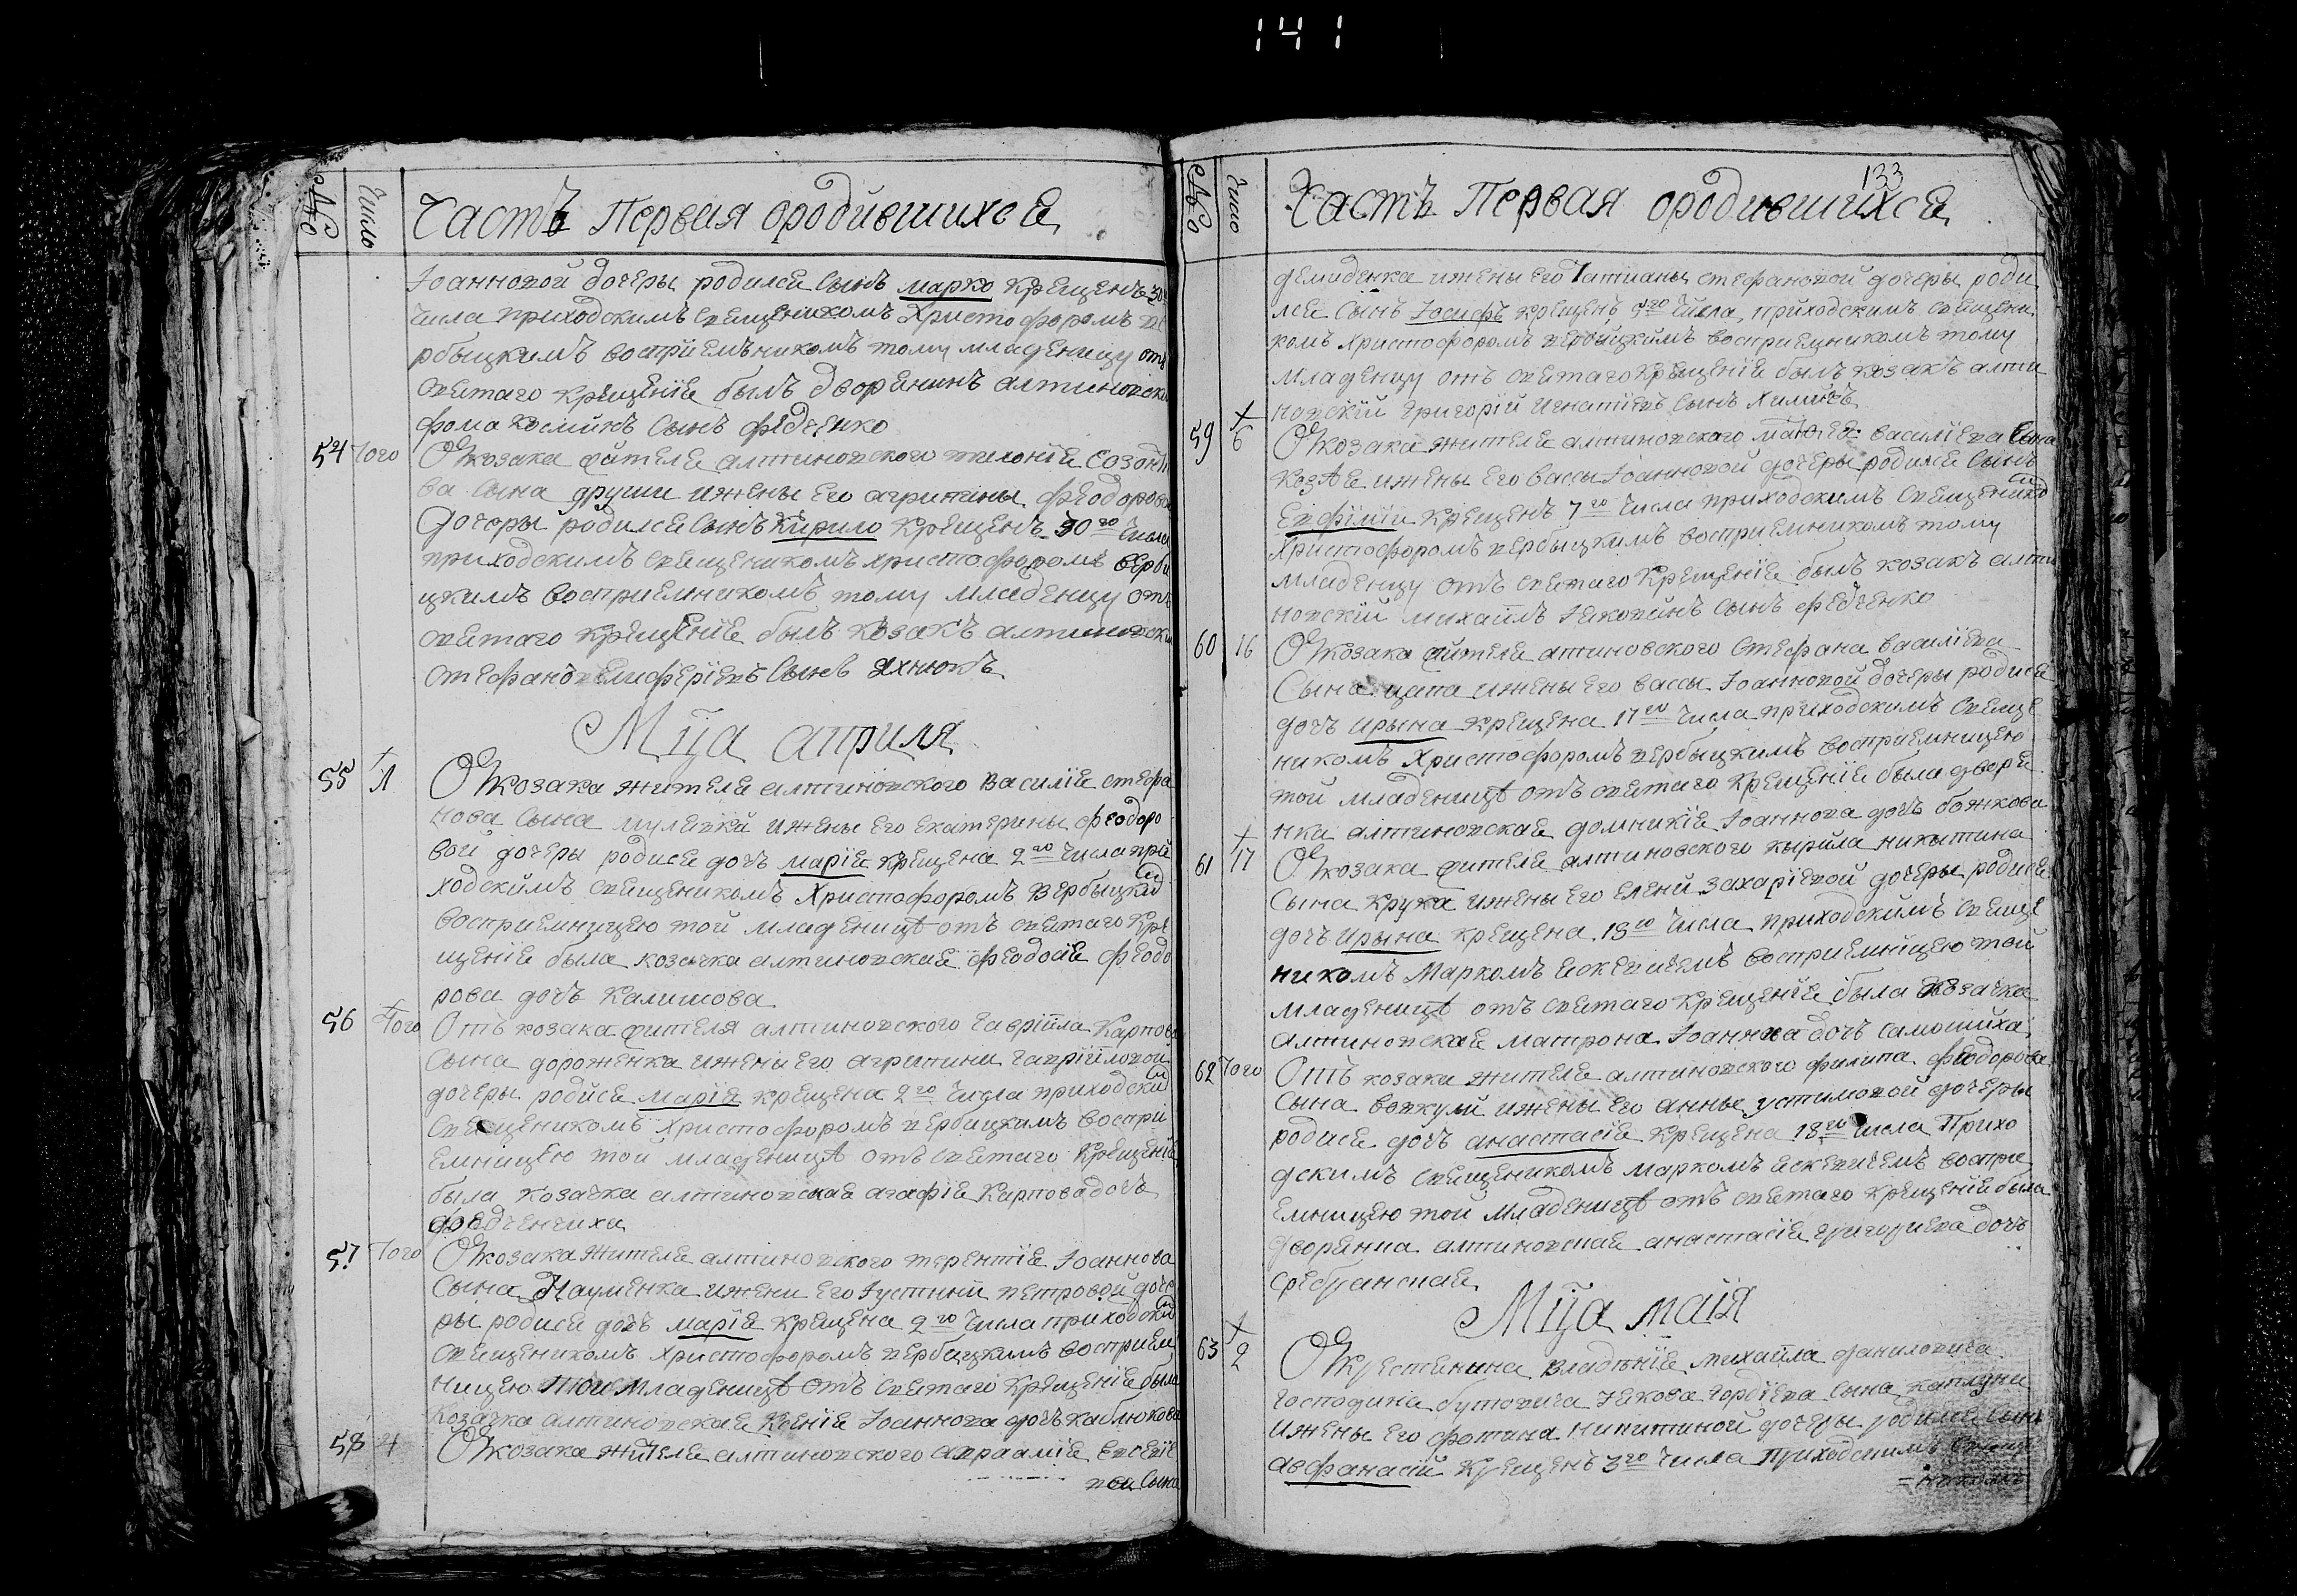 141
№
Число
Часть Первая ородившихсѧ
Іоанновой дочеры родилсѧ сынъ марко крещенъ 30
числа приходскимъ свѧщеникомъ Христофоромъ ве
рбыцкимъ воспріемъникомъ тому младенцу отъ
свѧтаго крещеніѧ былъ дворѧнинъ алтиновски
фома космѝнъ сынъ федченко
54 Того Ѿ козака жителѧ алтиновского тихоніѧ созонто
ва сына друши ижены его агрипины феодоровой
дочеры родилсѧ сынъ кирило крещенъ 30го числа
приходскимъ свѧщеникомъ христофоромъ верби
цкимъ воспрнемникомъ тому младенцу отъ
свѧтаго крещеніѧ былъ козакъ алтиновски
стефанъ елиферіевъ сынъ ѧхнюкъ
Мца априля
55 1 Ѿ козака жителѧ алтиновского василіѧ стефа
нова сына мулѧвки ижены его екатерины феодоро
вой дочеры родисѧ дочъ маріѧ крещена 2го числа при
ходскимъ свѧщеникомъ Христофоромъ Вербыцки
восприемницею той младеницѣ отъ свѧтаго кре
щеніѧ была козачка алтиновскаѧ феодосіѧ феодо
рова дочъ Калишова
56 Того Отъ козака жителя алтиновского гавріила Карпова
сына дороженка ижены его агрипини гавріиловой
дочеры родисѧ маріѧ крещена 2го числа приходски
свѧщеникомъ Христофоромъ вербицкимъ воспри
емницею той младеницѣ отъ свѧтаго Крещеніѧ
была козачка алтиновскаѧ агафіѧ Карпова дочъ
федченчиха
57 Того Ѿ козака жителѧ алтиновского терентіѧ Іоаннова
сына Науменка ижени его Іустини петровой доче
ры родисѧ дочъ маріѧ крещена 2го числа приходски
свѧщеникомъ христофоромъ вербицкимъ восприем
ницею той младеницѣ отъ свѧтаго крещеніѧ была
козачка алтиновскаѧ Ксеніѧ Іоаннова дочъ каблюкова
58 4 Ѿ козака жителѧ алтиновского аврааміѧ евсевіѧ
ва сына
133
№
Число
Часть Первая ородившихсѧ
демиденка ижены его Татианы стефановой дочеры роди
лсѧ сынъ Іосифъ крещенъ го числа приходскимъ свѧщени
комъ Христофоромъ вербицкимъ восприемникомъ тому
младенцу отъ свѧтаго крещеніѧ былъ козакъ алти
новскій григорій игнатіевъ сынъ
59 6 Ѿ козака жителѧ алтиновского василіева сына
козѧ ижены его вассы Іоанновой дочеры родилсѧ сынъ
Евфіміи крещенъ 7го числа приходскимъ свѧщенико
христофоромъ вербыцкимъ восприемникомъ тому
младенцу отъ свѧтаго крещеніѧ былъ козакъ алти
новскій михаилъ Іѧковинъ сынъ федченко
60 16 Ѿ козака жителѧ атиновского стефана василіева
сына цапа ижены его вассы Іоанновой дочеры родисѧ
дочъ ирына крещена 17го числа приходскимъ свѧще
никомъ Христофоромъ вербыцкимъ восприемницею
той младеницѣ отъ свѧтаго крещеніѧ была дворѧ
нка алтиновскаѧ домникіѧ Іоаннова дочъ божкова
61 17 Ѿ козака жителѧ алтиновского кырила никытина
сына Крука ижены его елени захаріевой дочеры родисѧ
дочъ ирына крещена 18го числа приходскимъ свѧще
никомъ Маркомъ ѧскевичемъ восприемницею той
младеницѣ отъ свѧтаго крещеніѧ была козачка
алтиновскаѧ матрона Іоаннва дочъ самошиха
62 Того Отъ козака жителѧ алтиновского филипа феодорова
сына вовкули ижены его анны устимовой дочеры
родисѧ дочъ анастасіѧ крещена 18го числа Прихо
дскимъ свѧщеникомъ маркомъ ѧскевичемъ воспри
емницею той младеницѣ отъ свѧтаго крещеніѧ была
дворѧнка алтиновскаѧ анастасіѧ григориева дочъ
сребранскаѧ
Мца маія
63 2 Ѿ крестѧнина владѣніѧ михаила даниловича
господина бутовича Іѧкова гордіева сына каплуни
ижены его фотина никитиной дочеры родилсѧ сынъ
авфанасій крещенъ 3го числа приходскимъ свѧще
=никомъ